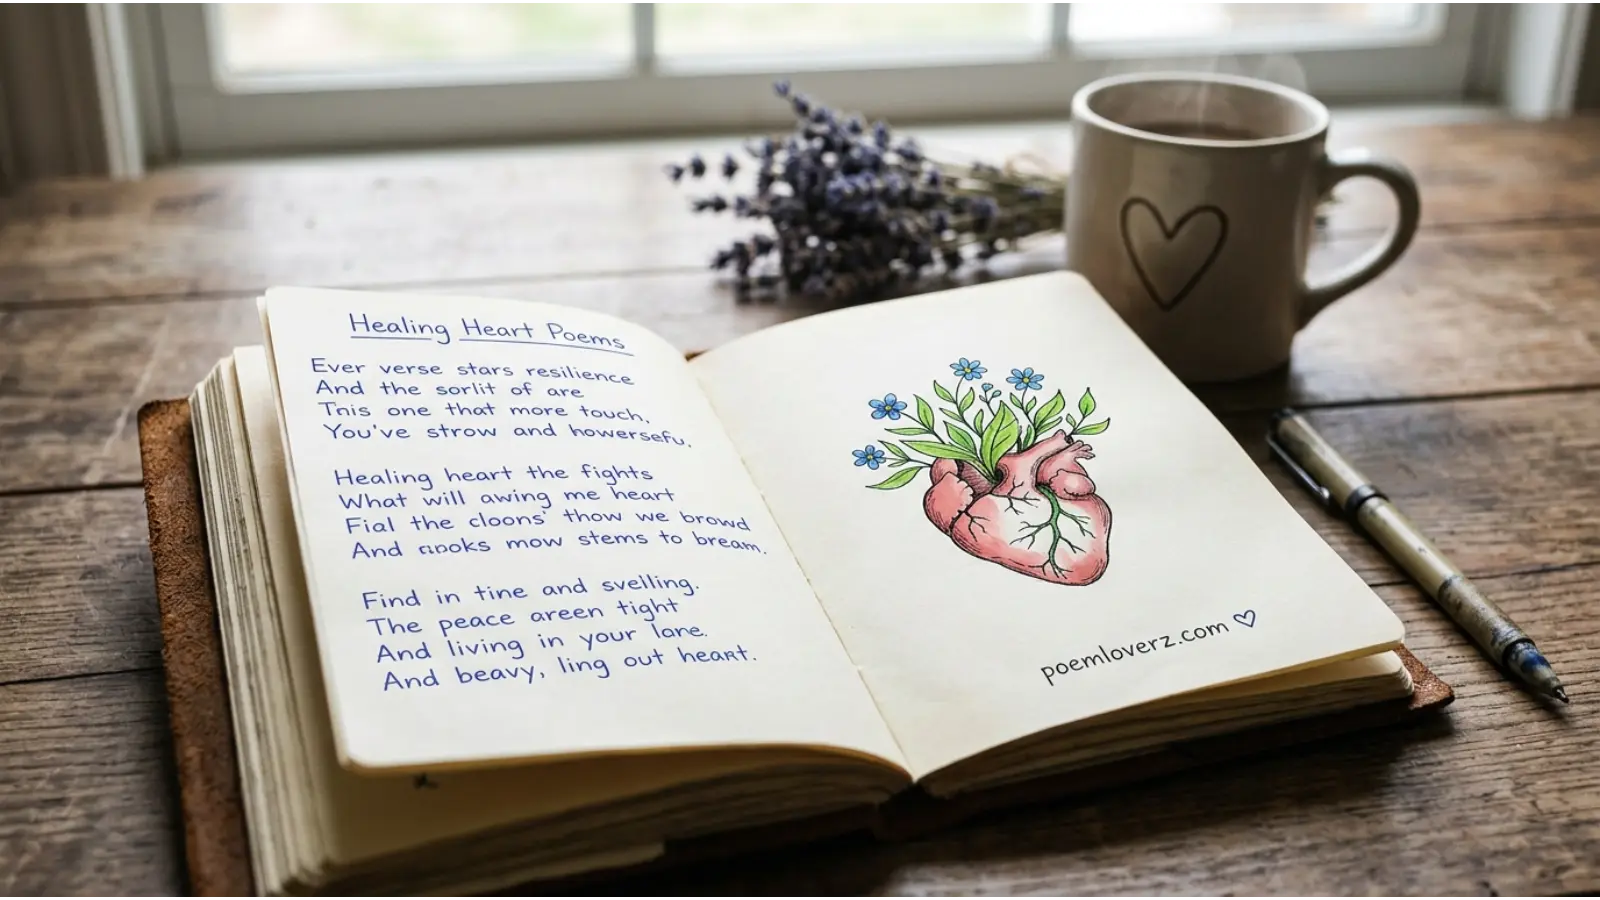 Healing Heart Poems
Ever verse stars resilience
And the sorlit of are
This one that more touch,
You've strow and howersefu.
Healing heart the fights
What will awing me heart
Fial the cloons' thow we browd
And mow stems to bream.
Find in tine and svelling.
The peace areen tight
And living in your lane.
And beavy, ling out heart.
poemloverz.com